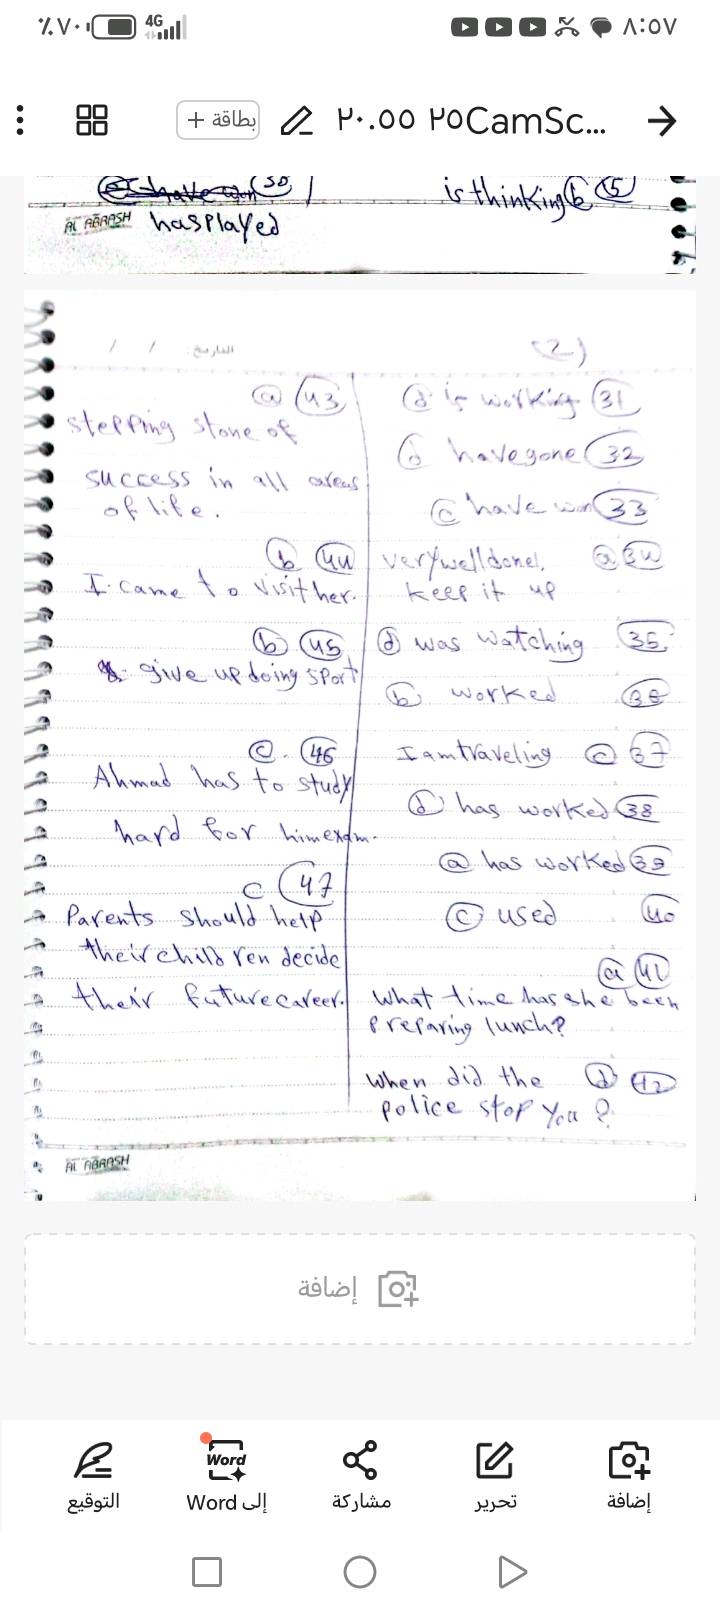 ٪٧٠ 4G ٨:٥٧
٢٠.٥٥ ٢٥CamSc...
بطاقة +
30
is thinking b 15
has played
AL ABRASH
التاريخ: / /
(2)
d is working 31
d have gone 32
c have won 33
very well done!, a 34
keep it up
d was watching 35
b worked 36
I am traveling c 37
d has worked 38
a has worked 39
c used 40
a 41
What time has she been
preparing lunch?
When did the d 42
police stop you?
a 43
stepping stone of
success in all areas
of life.
b 44
I came to visit her.
b 45
give up doing sport
c. 46
Ahmad has to study
hard for him exam.
c 47
Parents should help
their children decide
their future career.
AL ABRASH
إضافة
التوقيع
Word
إلى Word
مشاركة
تحرير
إضافة